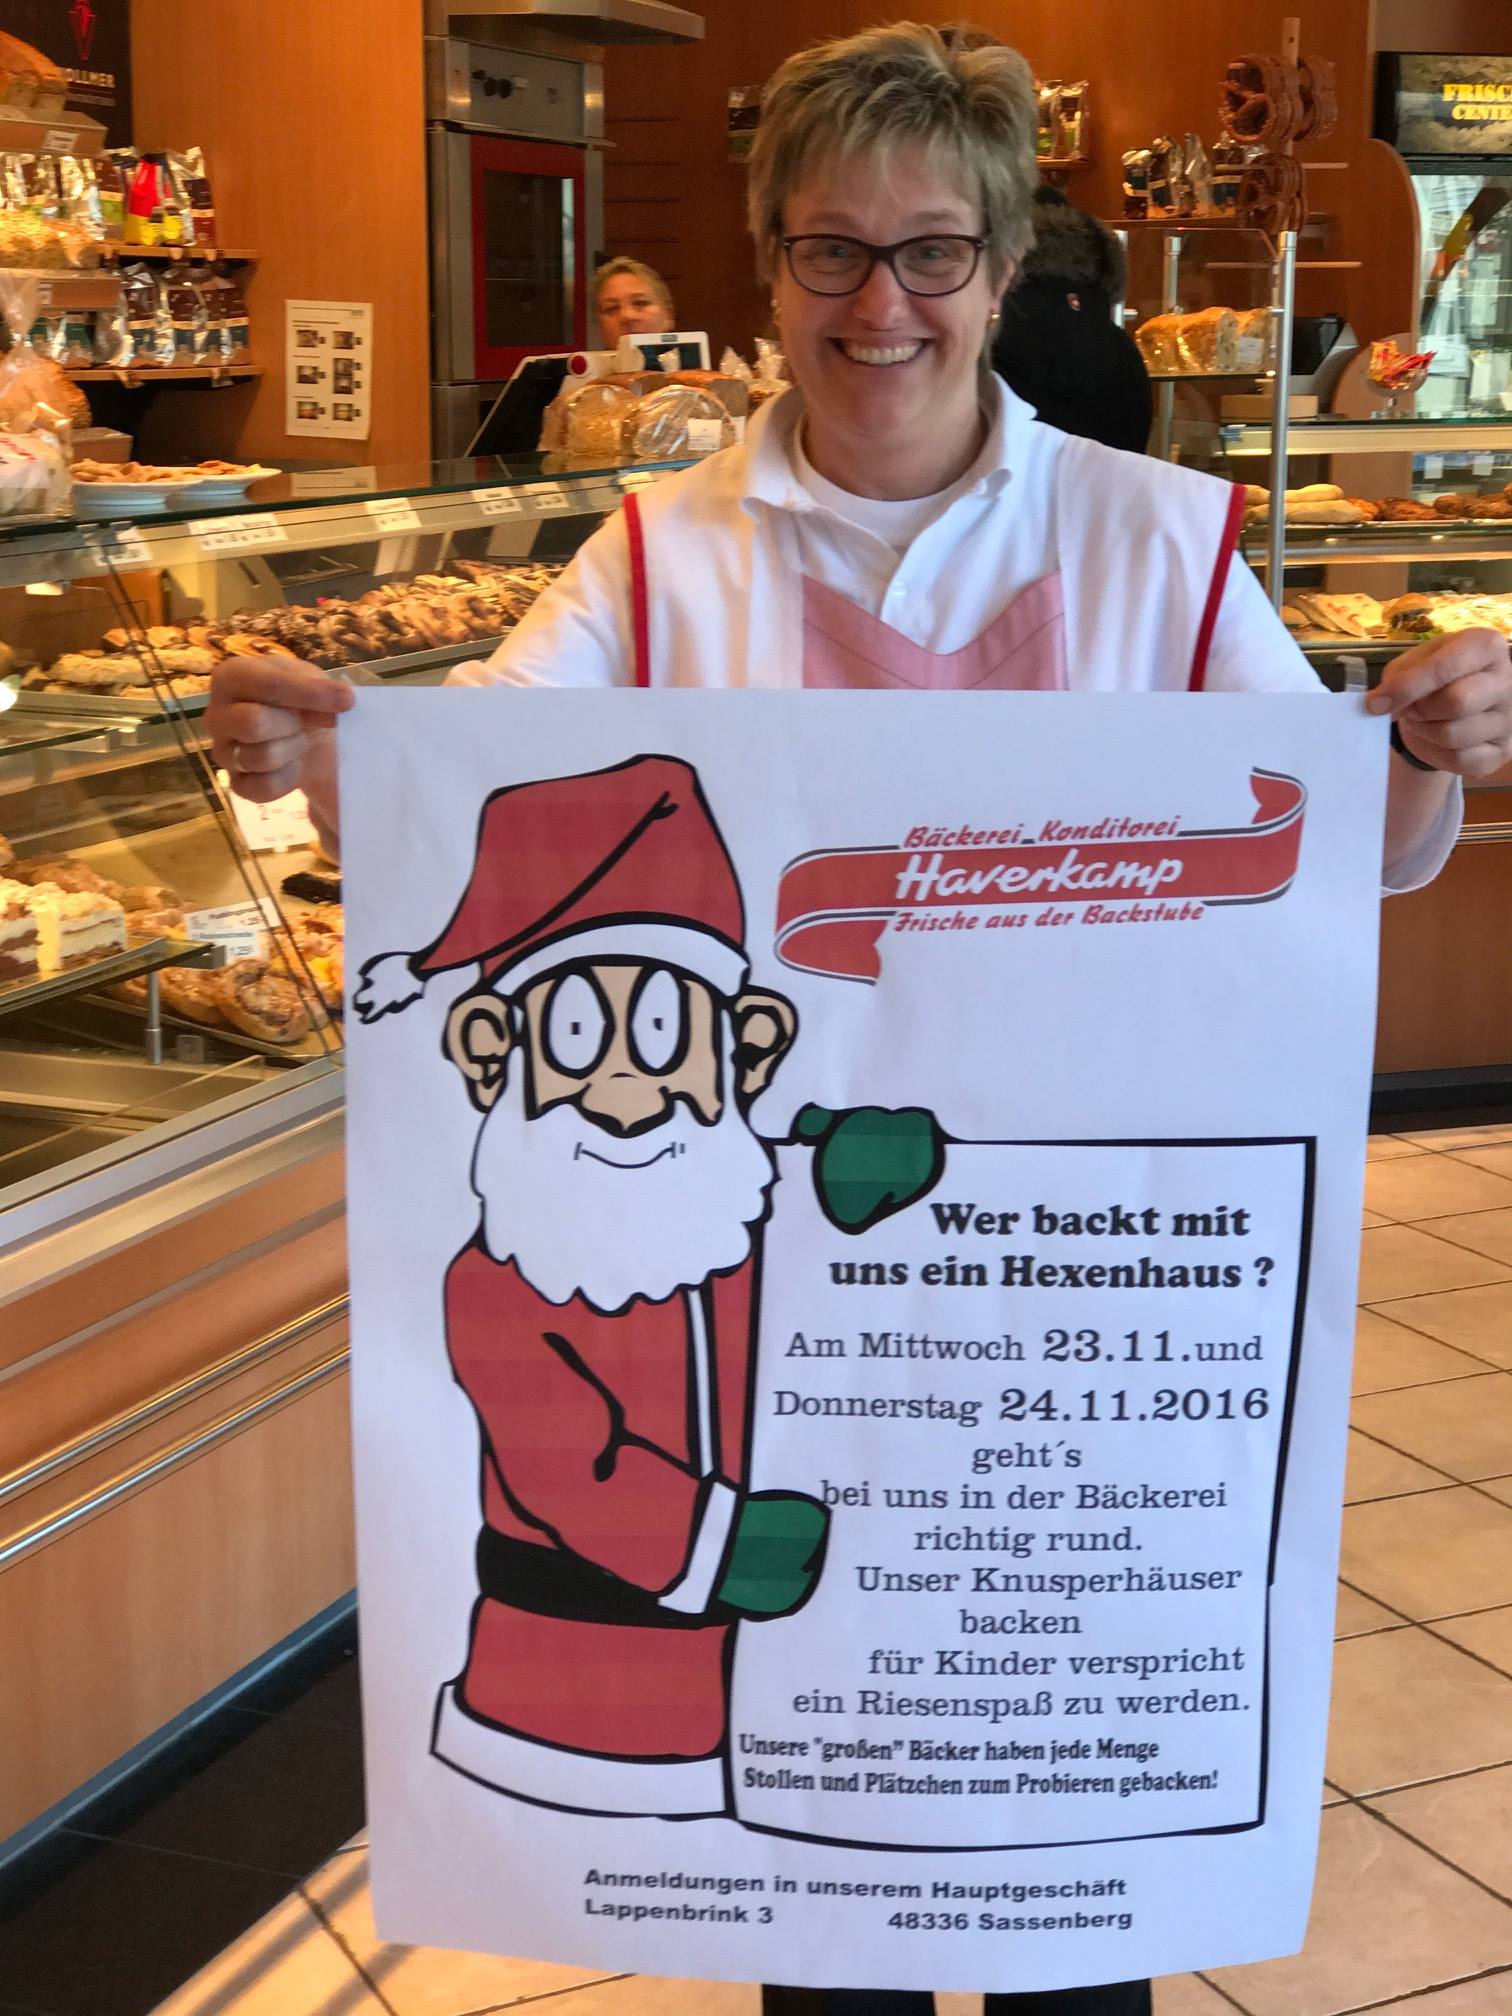 FRISC
CENTE
Bäckerei_Konditorei
Haverkamp
Frische aus der Backstube
Wer backt mit
uns ein Hexenhaus ?
Am Mittwoch 23.11.und
Donnerstag 24.11.2016
geht´s
bei uns in der Bäckerei
richtig rund.
Unser Knusperhäuser
backen
für Kinder verspricht
ein Riesenspaß zu werden.
Unsere "großen" Bäcker haben jede Menge
Stollen und Plätzchen zum Probieren gebacken!
Anmeldungen in unserem Hauptgeschäft
Lappenbrink 3 48336 Sassenberg